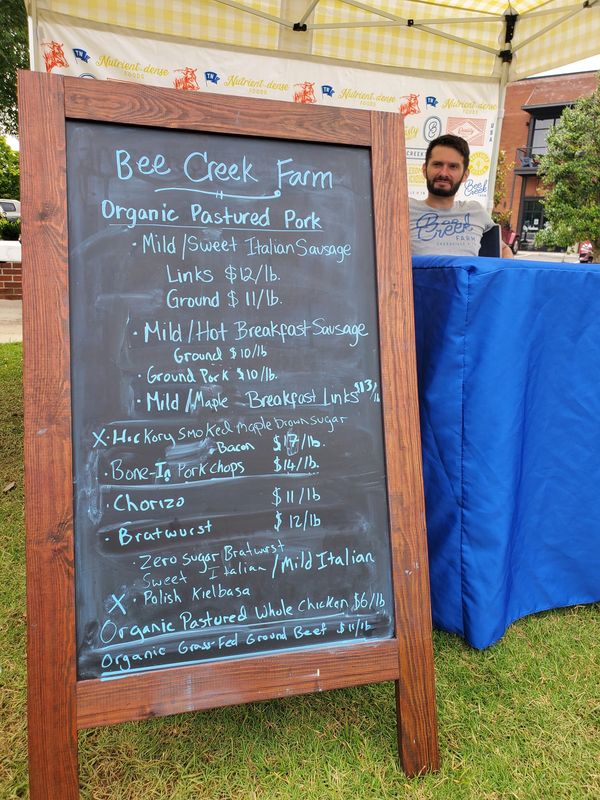 Nutrient-dense
FOODS
TN
Nutrient-dense
FOODS
TN
Nutrient-dense
TN
Nutrient-dense
USA
Bee Creek Farm
Organic Pastured Pork
· Mild/Sweet Italian Sausage
Links $12/lb.
Ground $11/lb.
· Mild/Hot Breakfast Sausage
Ground $10/lb
· Ground Pork $10/lb.
· Mild/Maple Breakfast Links $13/lb
X · Hickory Smoked Maple brown sugar
Bacon $17/lb.
· Bone-In Pork chops $14/lb.
· Chorizo $11/lb
· Bratwurst $12/lb
· Zero sugar Bratwurst
Sweet Italian/Mild Italian
X · Polish Kielbasa
Organic Pastured Whole Chicken $6/lb
Organic Grass-Fed Ground Beef $11/lb
Bee Creek
FARM